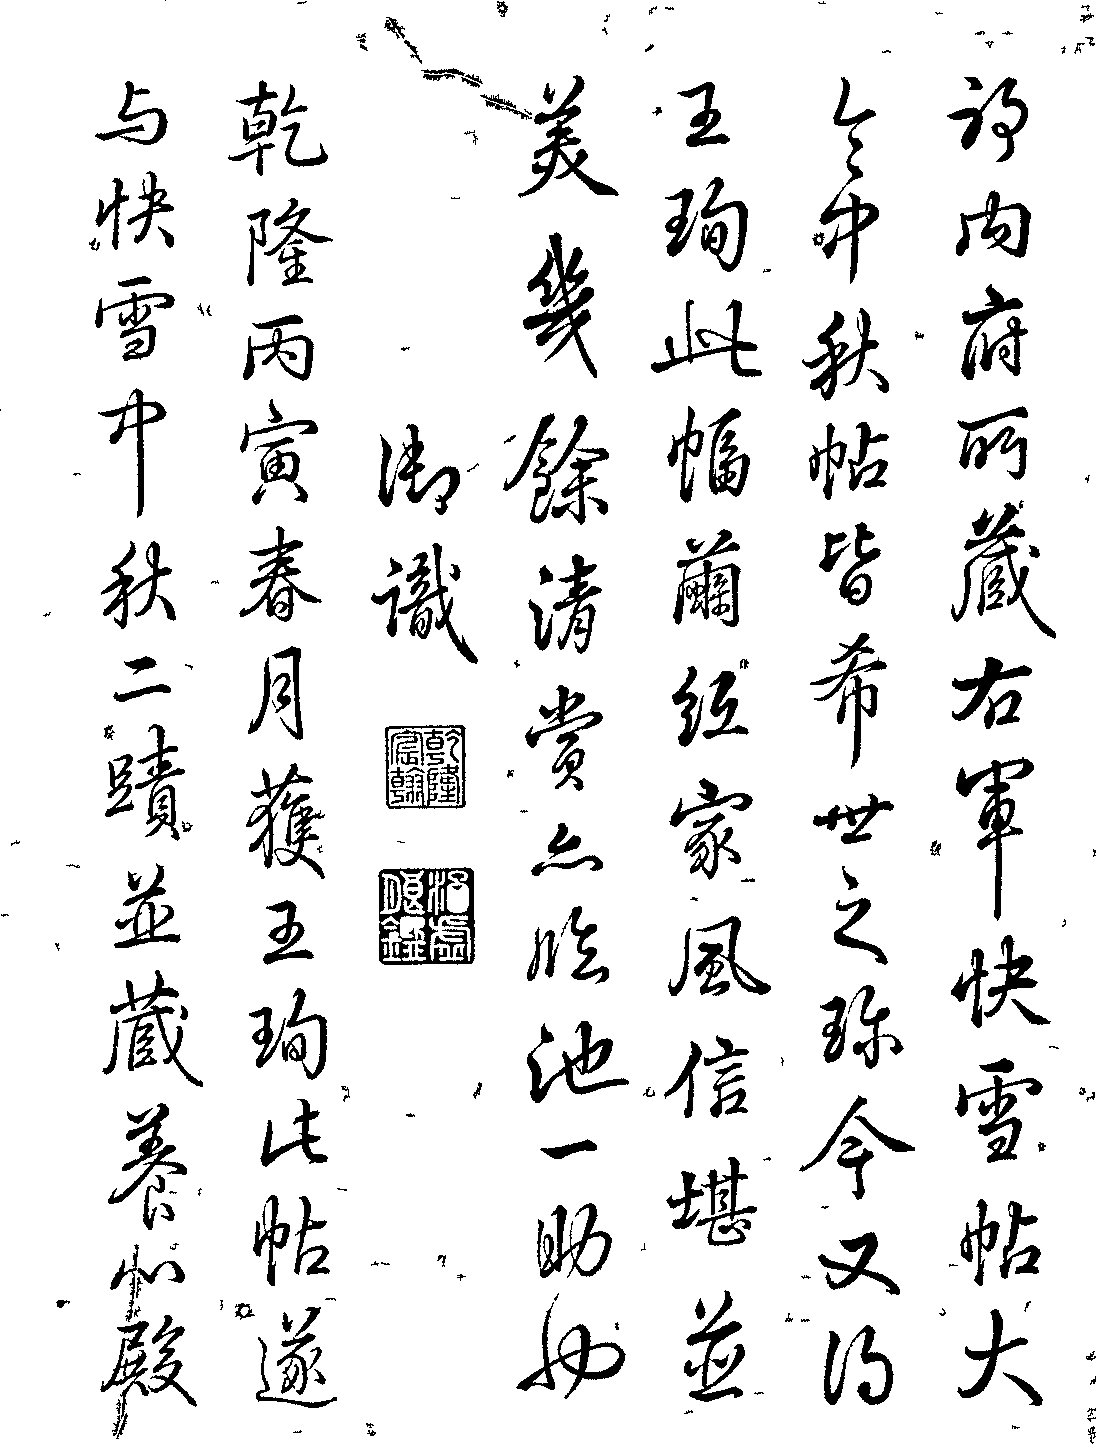 耶內府所藏右軍快雪帖大
令中秋帖皆希世之珍今又得
王珣此幅繭紙家風信堪並
美幾餘清賞亦臨池一助也
御識
乾隆宸翰
涵虛朗鑑
乾隆丙寅春月獲王珣此帖遂
与快雪中秋二蹟並藏養心殿